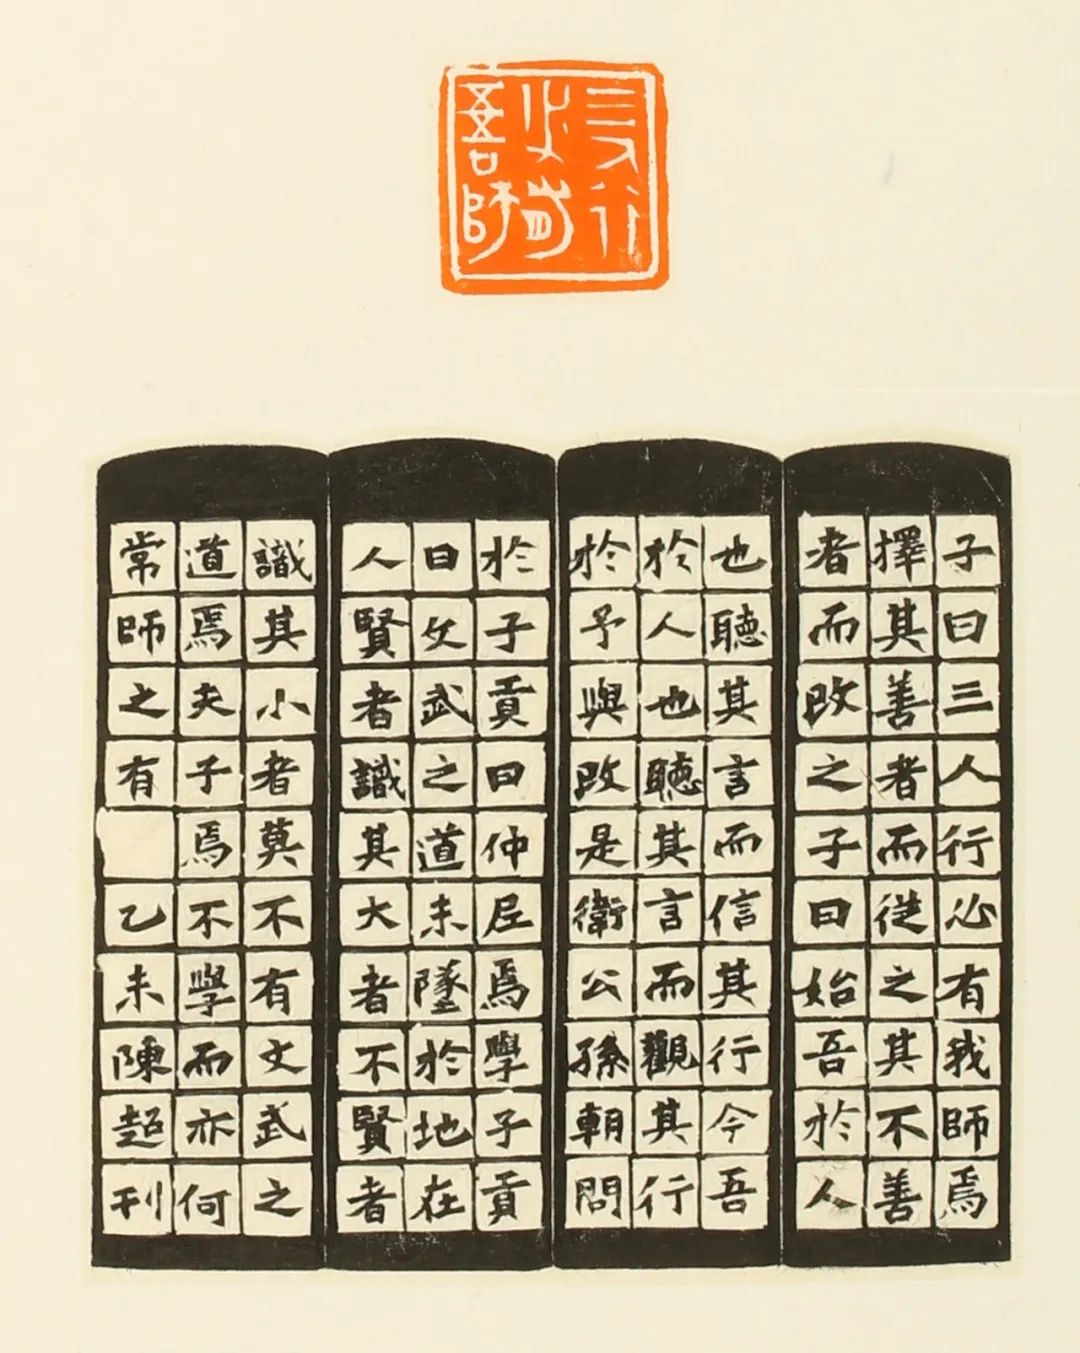 三人行
必有
吾師
子曰三人行必有我師焉
擇其善者而從之其不善
者而改之子曰始吾於人
也聽其言而信其行今吾
於人也聽其言而觀其行
於予與改是衛公孫朝問
於子貢曰仲尼焉學子貢
曰文武之道未墜於地在
人賢者識其大者不賢者
識其小者莫不有文武之
道焉夫子焉不學而亦何
常師之有 乙未陳超刊